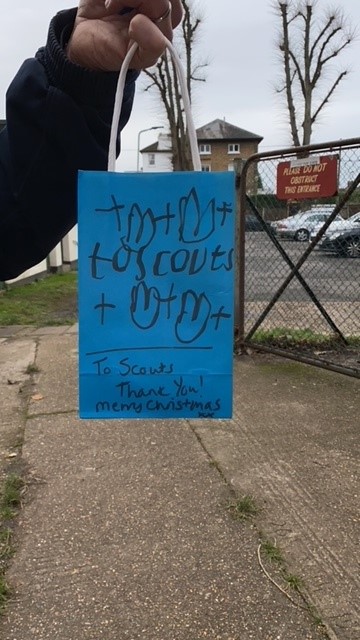 PLEASE DO NOT
OBSTRUCT
THIS ENTRANCE
to scouts
To Scouts
Thank You!
merry christmas